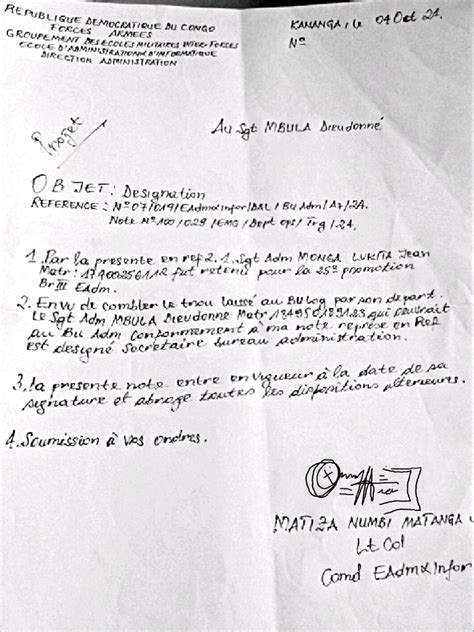 REPUBLIQUE DEMOCRATIQUE DU CONGO
FORCES ARMEES
GROUPEMENT DES ECOLES MILITAIRES INTER FORCES
ECOLE D'ADMINISTRATION & D'INFORMATIQUE
DIRECTION ADMINISTRATION
KANANGA, le 04 Oct 24.
N°
Projet
Au Sgt MBULA Dieudonné
OBJET: Designation
REFERENCE: N°07/019/EAdm&Infor/DAL/Bu Adm/A7/24.
Note N°100/029/EMG/Dept ops/Trg/24.
1. Par la presente en ref 2. 1. Sgt Adm MONGA Jean
Matr: 17400256112 fut retenu pour la 25e promotion
Br III EAdm.
2. En vu de combler le trou laissé au Bu log par son depart.
Le Sgt Adm MBULA Dieudonné Matr qui
au Bu Adm conformement à ma note reprise en Ref
est designé secretaire bureau administration.
3. la presente note entre en vigueur à la date de sa
signature et abroge toutes les dispositions
4. Soumission à vos ordres.
MATIZA NUMBI MATANGA
Lt Col
Comd EAdm&Infor